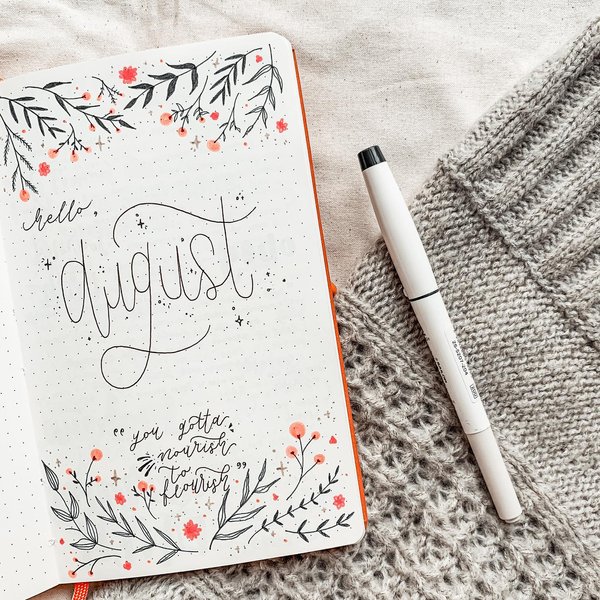 hello,
august
"you gotta
nourish
to
flourish"